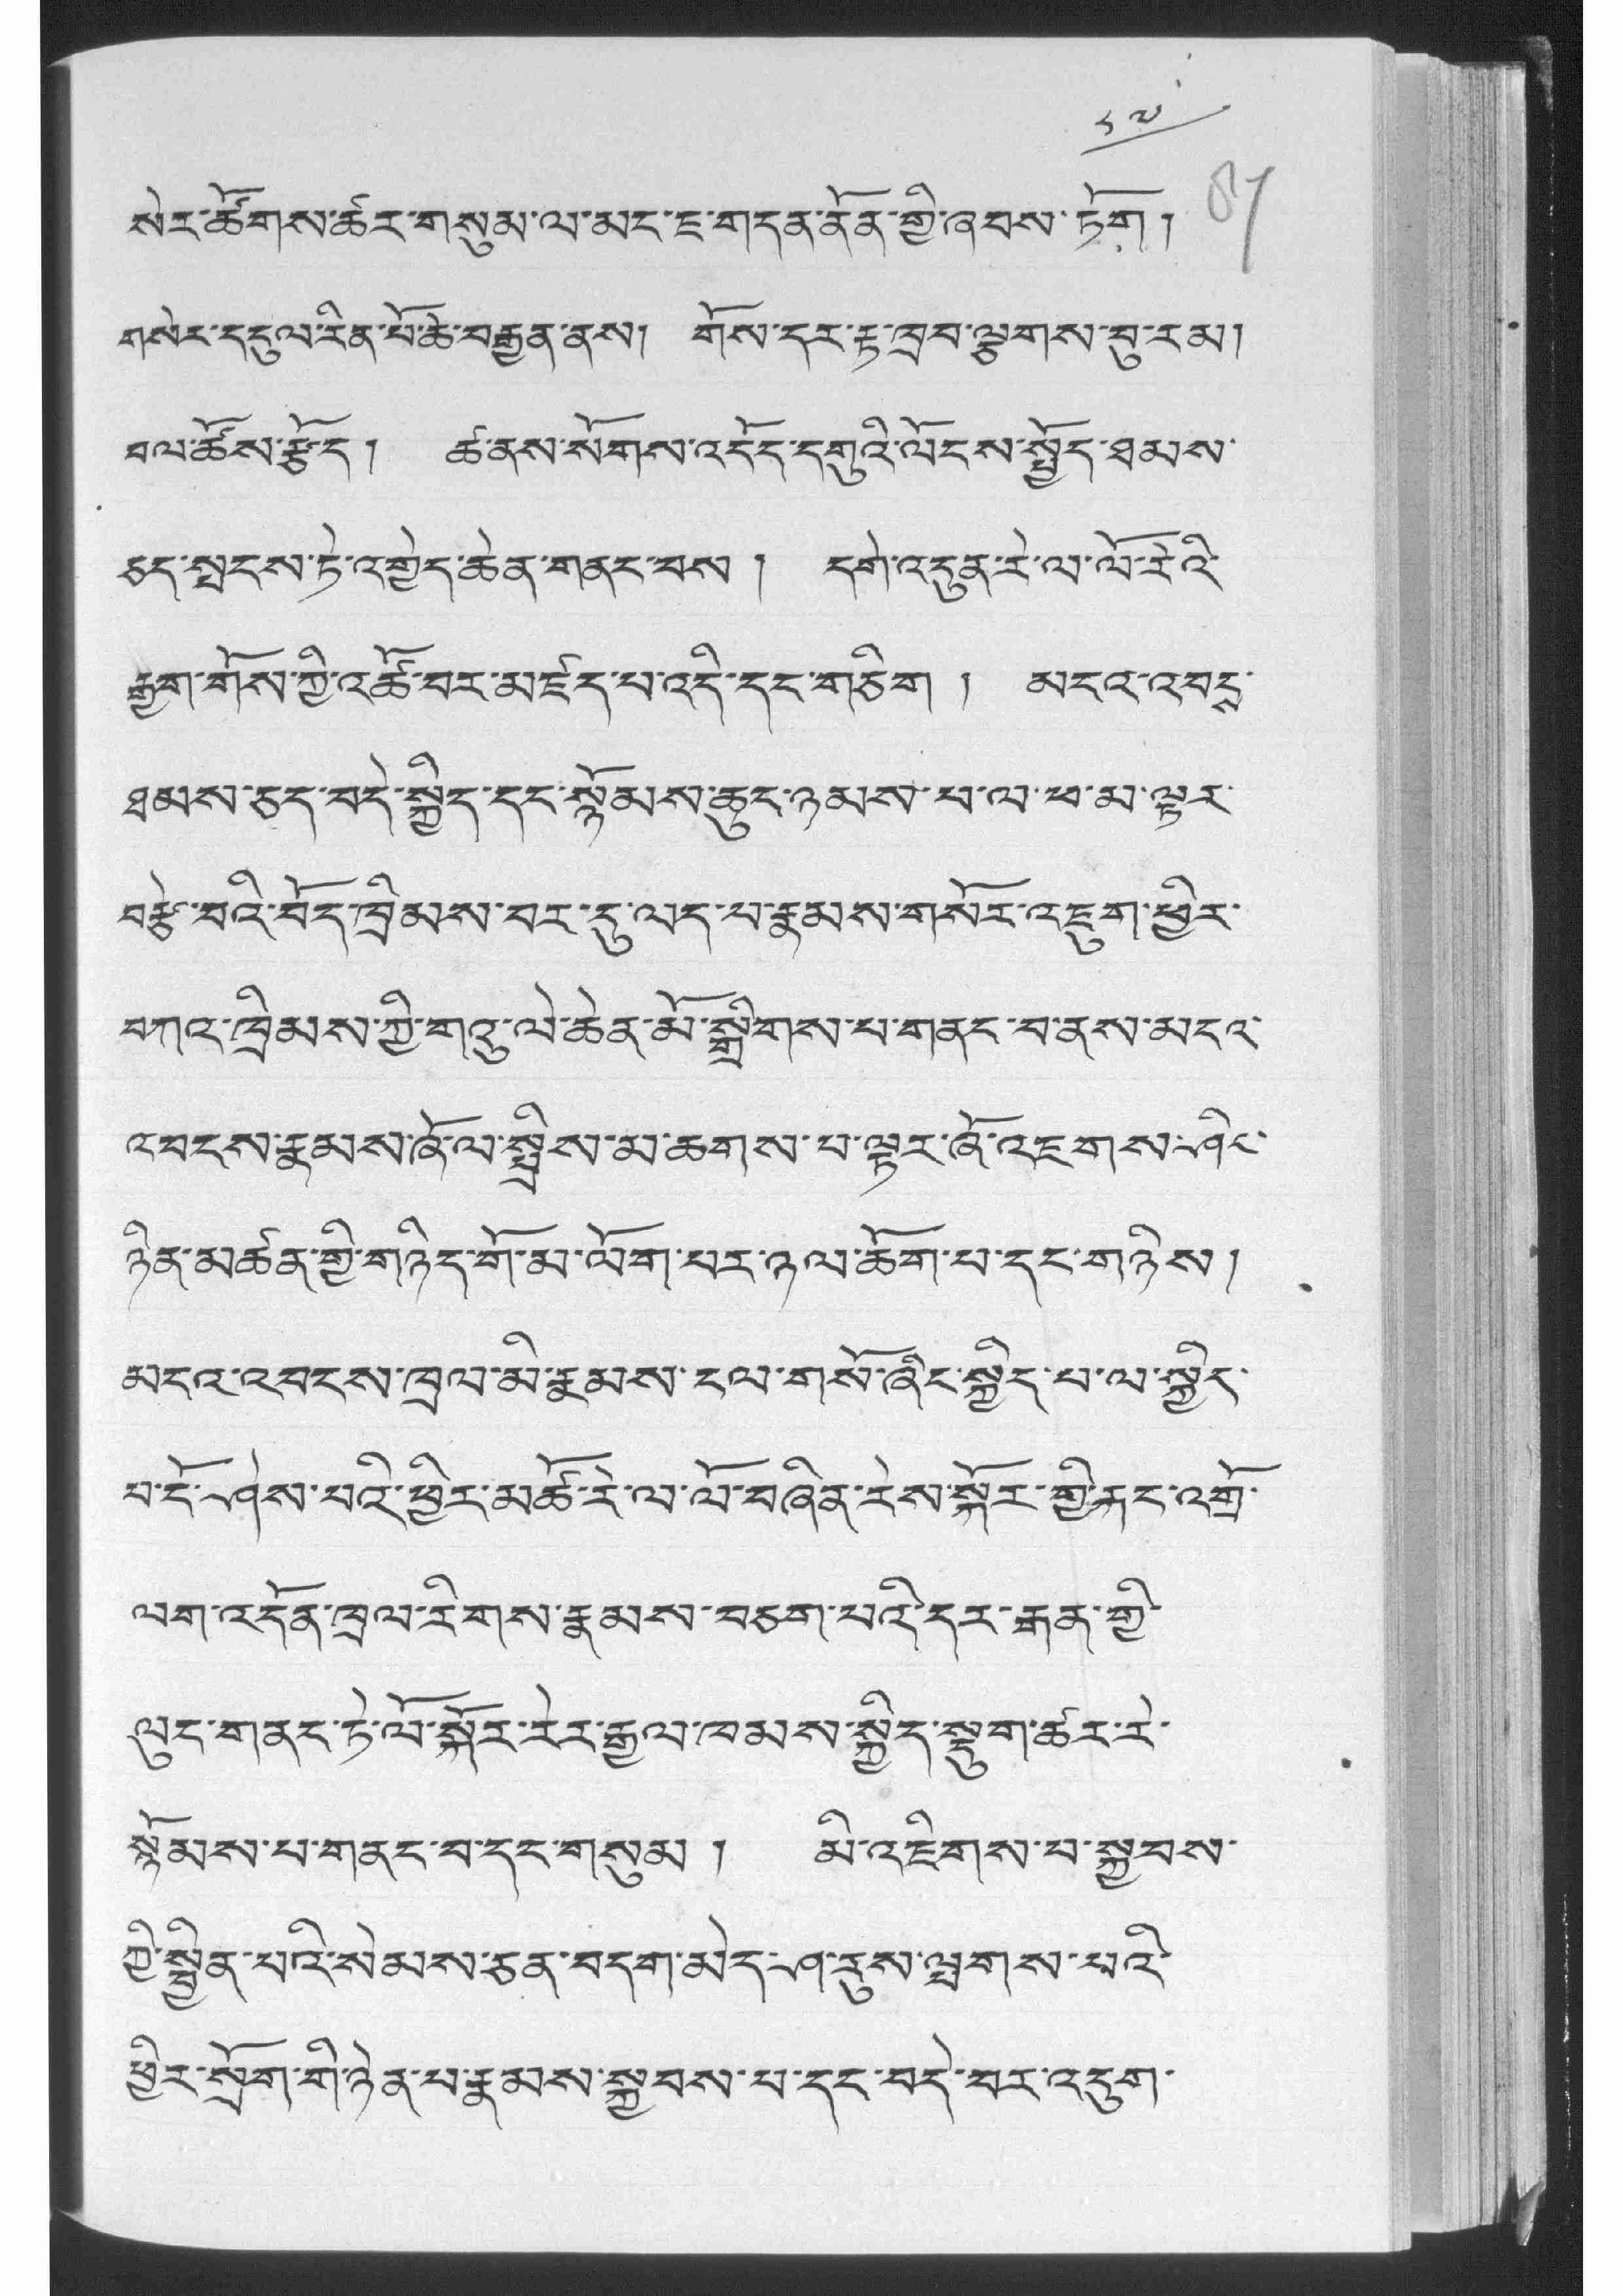 ༨༧
87
སེར་ཚོགས་ཚར་གསུམ་ལ་མང་ཇ་གདན་ནོན་གྱི་ཞབས་ཏོག །
གསེར་དངུལ་རིན་པོ་ཆེ་བརྒྱན་ནས། གོས་དར་རྟ་ཁྲབ་ལྕགས་བུ་རམ།
བལ་ཚོས་རྩོད། ཚ་ནས་སོགས་འདོད་དགུའི་ལོངས་སྤྱོད་ཐམས་
ཅད་སྤངས་ཏེ་འགྱེད་ཆེན་གནང་བས། དགེ་འདུན་རེ་ལ་ལོ་རེའི་
རྒྱག་གོས་ཀྱི་འཚོ་བར་མཛད་པ་འདི་དང་གཅིག །མངའ་འབངྶ་
ཐམས་ཅད་བདེ་སྐྱིད་དང་སྙོམས་ཆུང་ཉམས་པ་ལ་ཕ་མ་ལྟར་
བརྩེ་བའི་བོད་ཁྲིམས་བར་དུ་ལད་པ་རྣམས་གསོར་འཇུག་ཕྱིར་
བཀའ་ཁྲིམས་ཀྱི་གཞུ་ལེ་ཆེན་མོ་སྒྲིགས་པ་གནང་བ་ནས་མངའ་
འབངས་རྣམས་ཞོ་ལ་སྤྲིས་མ་ཆགས་པ་ལྟར་ཞོ་འཇགས་ཤིང་
ཉིན་མཚན་གྱི་གཉིད་གོ་མ་ལོག་པར་ཉལ་ཆོག་པ་དང་གཉིས།
མངའ་འབངས་ཁྲལ་མི་རྣམས་ངལ་གསོ་ཞིང་སྐྱིད་པ་ལ་སྐྱིད་
པ་ངོ་ཤེས་པའི་ཕྱིར་མཚོ་རེ་ལ་ལོ་བཞིན་རེས་སྐོར་གྱི་རྐང་འགྲོ་
ལག་འདོན་ཁྲལ་རིགས་རྣམས་བཅག་པའི་དར་རྒན་གྱི་
ལུང་གནང་ཏེ་ལོ་སྐོར་རེར་རྒྱལ་ཁམས་སྐྱིད་སྡུག་ཚར་རེ་
སྙོམས་པ་གནང་བ་དང་གསུམ། མི་འཇིགས་པ་སྐྱབས་
ཀྱི་སྦྱིན་པའི་སེམས་ཅན་བདག་མེད་ཤ་རུས་ལྤགས་པའི་
ཕྱིར་སྲོག་གི་ཉེན་པ་རྣམས་སྐྱབས་པ་དང་བདེ་བར་འདུག་